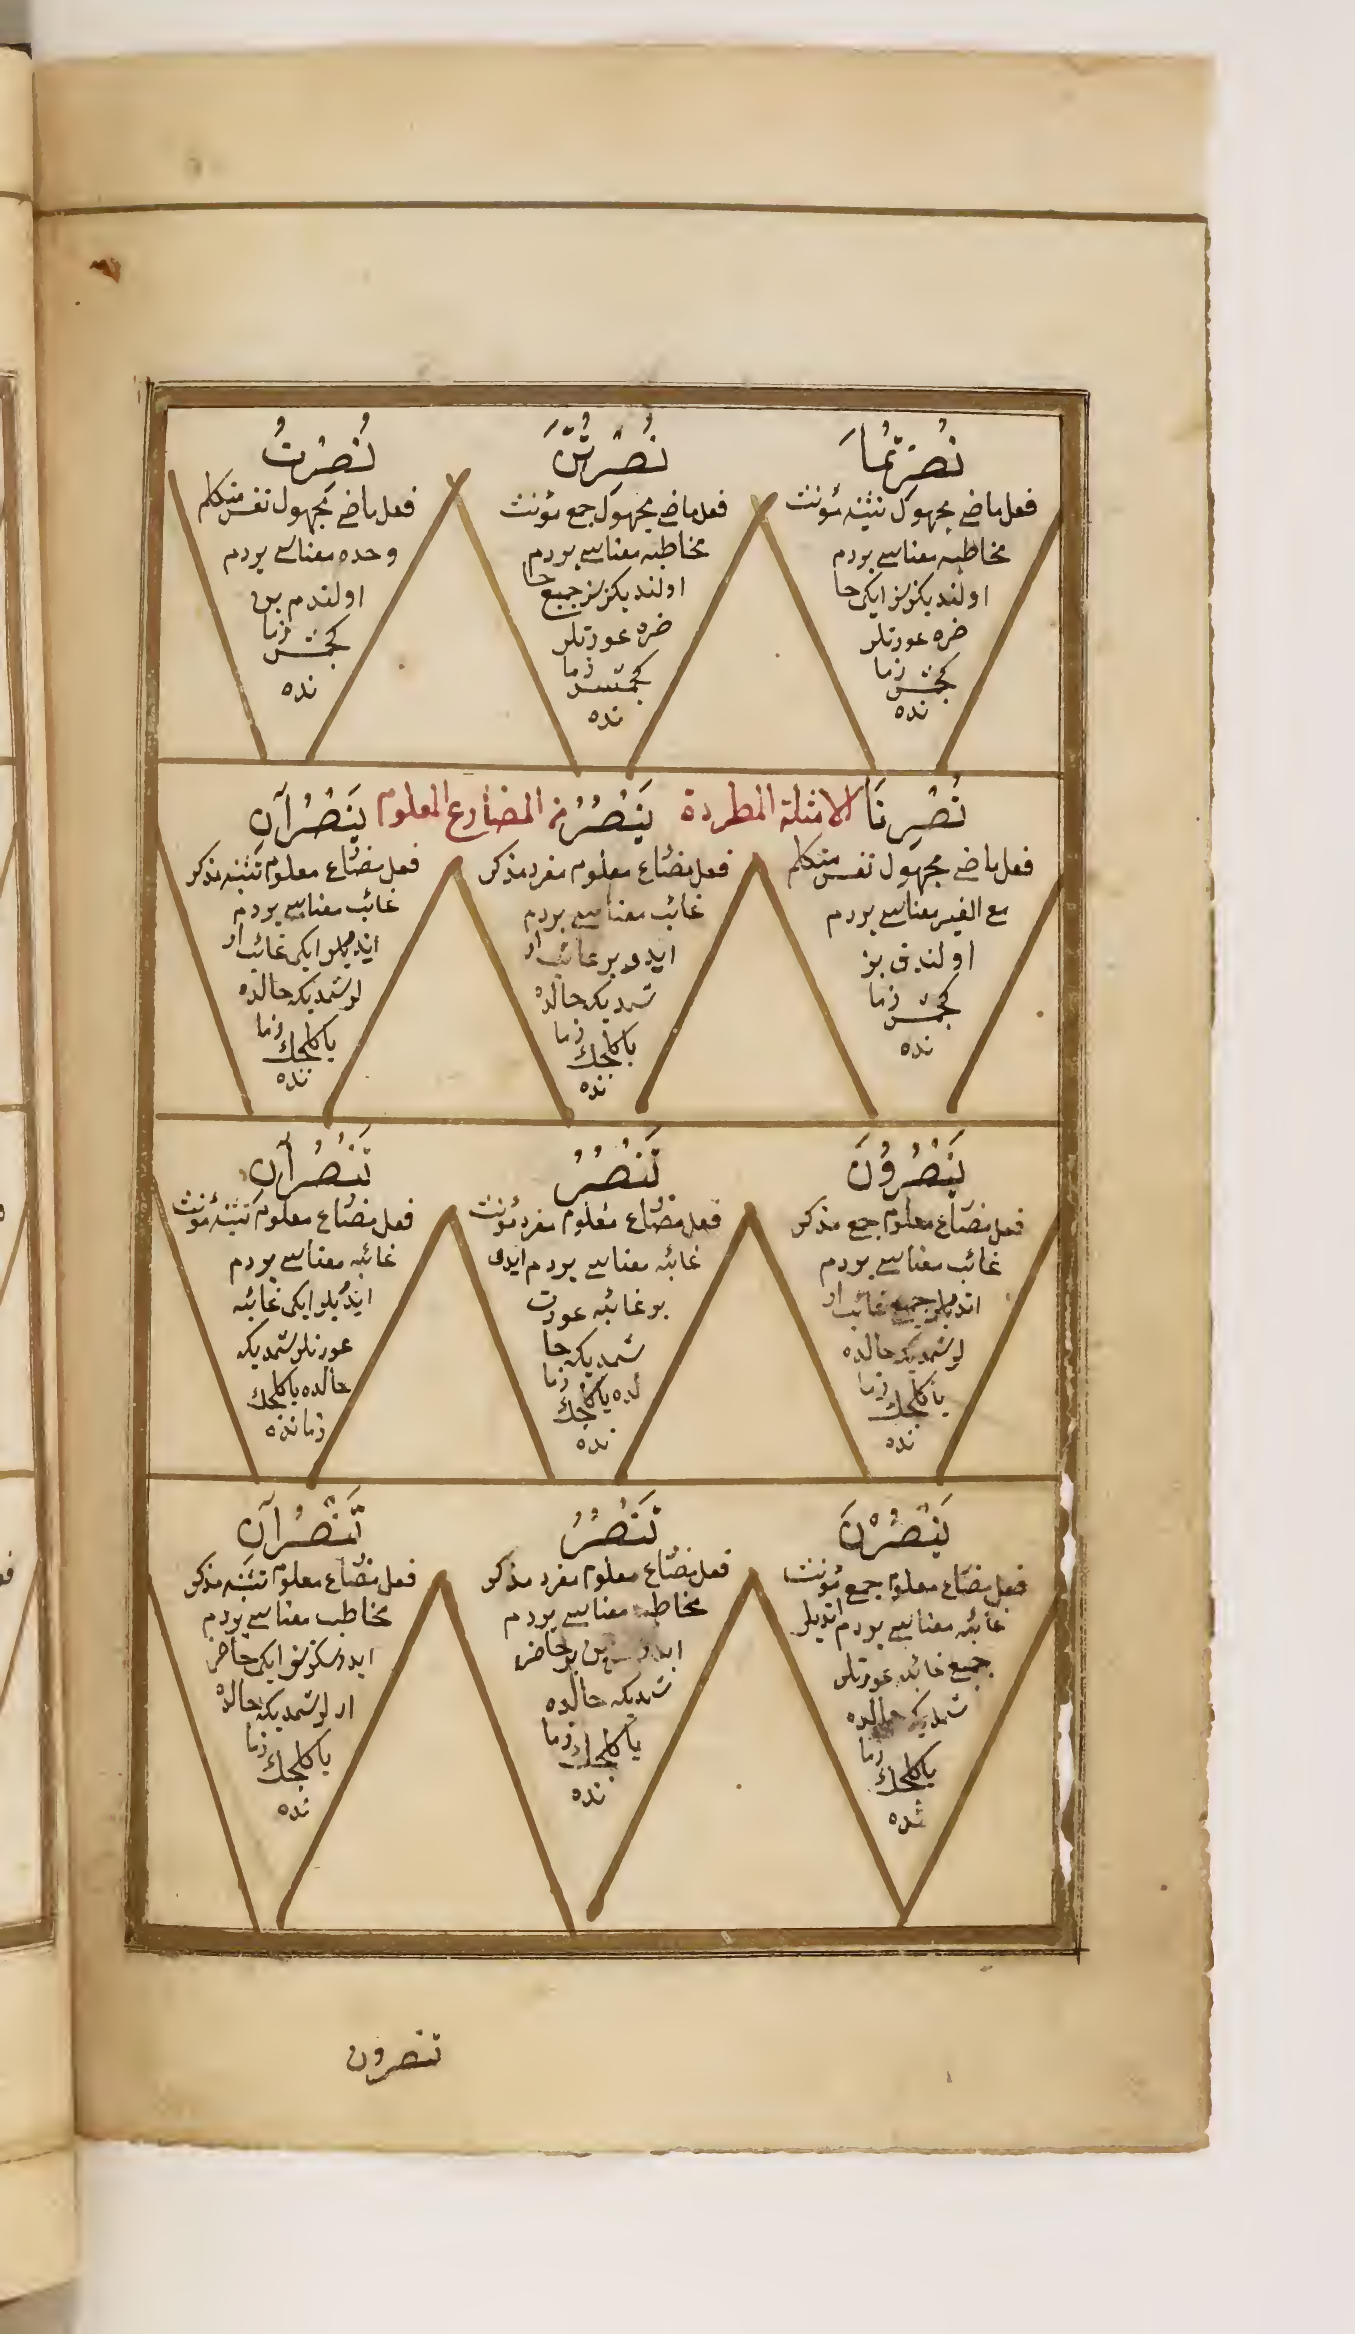 نُصِرْتُمَا
فعل ماضی مجهول تثنیه مؤنث
مخاطبه معناسی یردم
اولندیکز سز ایکی حا
ضره عورتلر
کچمش زما
نده
نُصِرْتُنَّ
فعل ماضی مجهول جمع مؤنث
مخاطبه معناسی یردم
اولندیکز سز جمیع حا
ضره عورتلر
کچمش زما
نده
نُصِرْتُ
فعل ماضی مجهول نفس متکلم
وحده معناسی یردم
اولندم بن
کچمش زما
نده
نُصِرْنَا
فعل ماضی مجهول نفس متکلم
مع الغیر معناسی یردم
اولندق بز
کچمش زما
نده
الامثلة المطردة
یَنْصُرُ
فعل مضارع معلوم مفرد مذکر
غائب معناسی یردم
ایدر بر غائب ار
شمدیکه حالده
یا کلجك زما
نده
من المضارع المعلوم
یَنْصُرَانِ
فعل مضارع معلوم تثنیه مذکر
غائب معناسی یردم
ایدیلر ایکی غائب ار
لر شمدیکه حالده
یا کلجك زما
نده
یَنْصُرُونَ
فعل مضارع معلوم جمع مذکر
غائب معناسی یردم
ایدیلر جمیع غائب ار
لر شمدیکه حالده
یا کلجك زما
نده
تَنْصُرُ
فعل مضارع معلوم مفرد مؤنث
غائبه معناسی یردم ایدر
بر غائبه عورت
شمدیکه حا
لده یا کلجك زما
نده
تَنْصُرَانِ
فعل مضارع معلوم تثنیه مؤنث
غائبه معناسی یردم
ایدیلر ایکی غائبه
عورتلر شمدیکه
حالده یا کلجك
زمانده
یَنْصُرْنَ
فعل مضارع معلوم جمع مؤنث
غائبه معناسی یردم ایدیلر
جمیع غائبه عورتلر
شمدیکه حالده
یا کلجك زما
نده
تَنْصُرُ
فعل مضارع معلوم مفرد مذکر
مخاطب معناسی یردم
بر حاضر
شمدیکه حالده
یا کلجك زما
نده
تَنْصُرَانِ
فعل مضارع معلوم تثنیه مذکر
مخاطب معناسی یردم
ایدرسکز سز ایکی حاضر
ار لر شمدیکه حالده
یا کلجك زما
نده
تنصرون